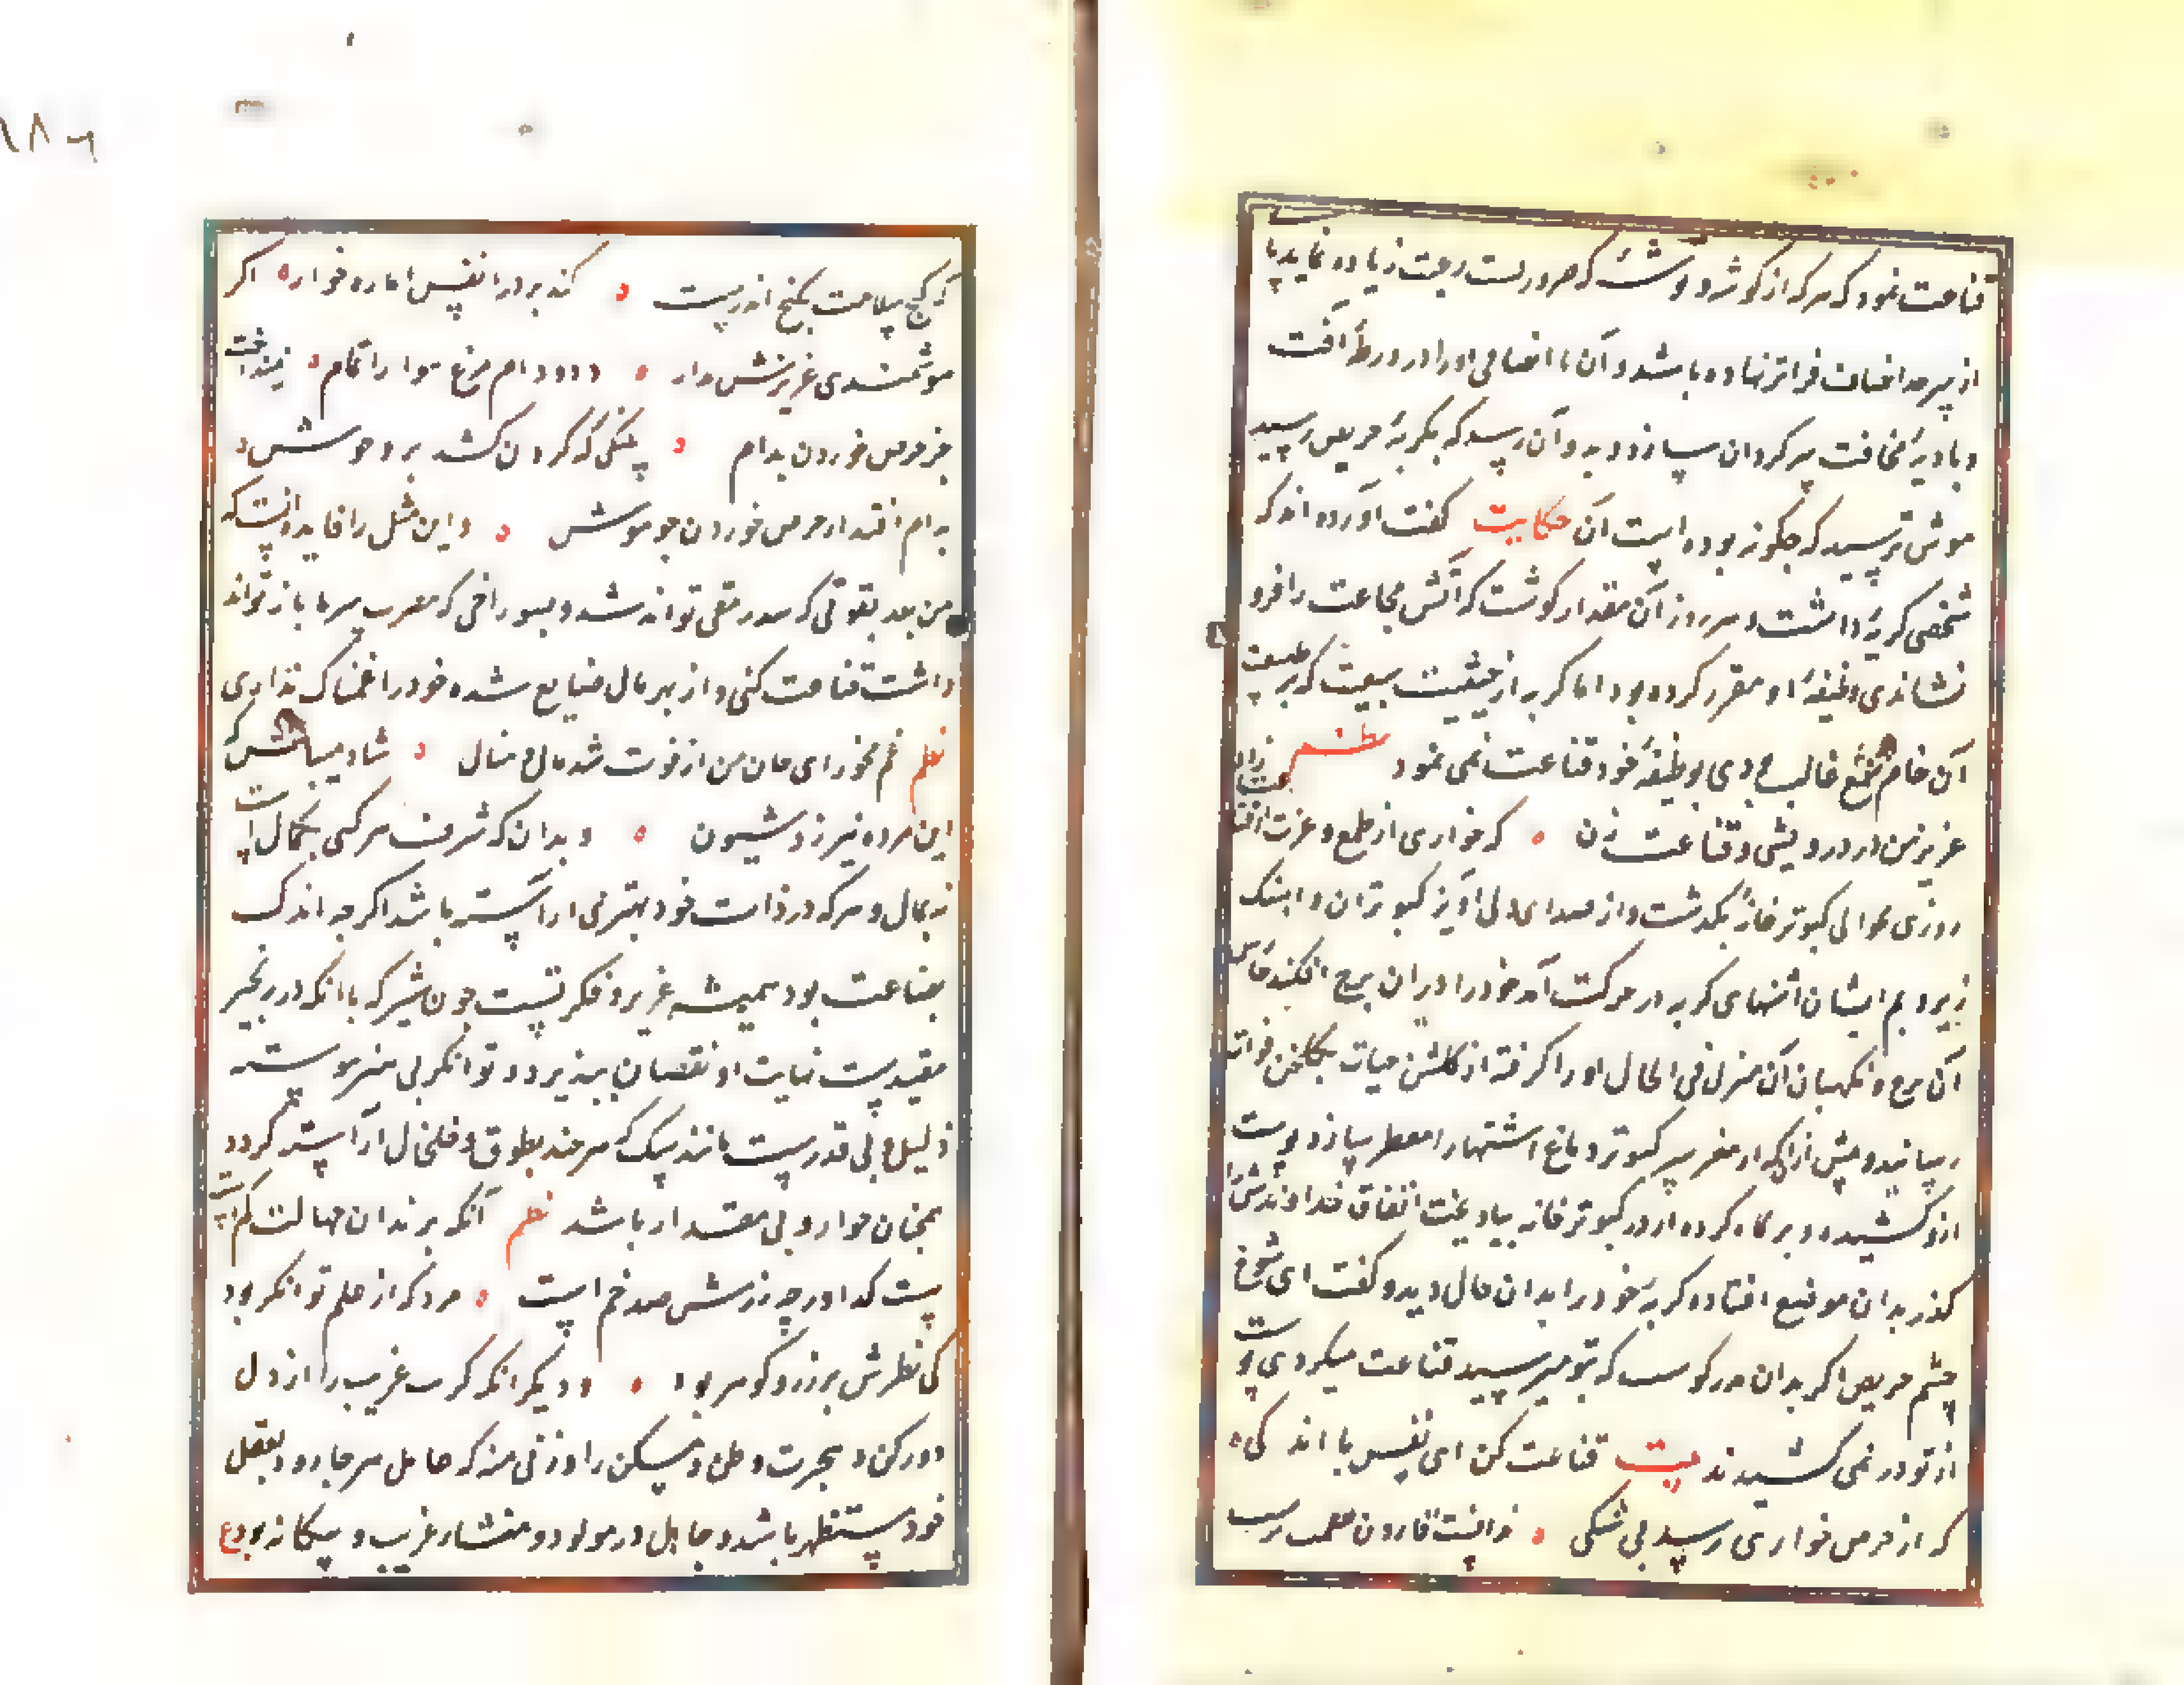 قناعت نمود که هرکه از گوشه و توشه که ضرورست رغبت زیاده نماید پا
از سرحد انصاف فراتر نهاده باشد و آن ناانصافی او را در ورطه آفت
و بادیه مخافت سرگردان سازد و بدو آن رسد که بگربه حریص رسید
موش پرسید که چگونه بوده است آن حکایت گفت آورده اند که
شخصی گربه داشت و هر روز آن مقدار گوشت که آتش مجاعت را فرو
نشاندی وظیفه او مقرر کرده بود اما گربه از حیثیت سبعیت که بر طبیعت
آن خام طمع غالب بودی بوظیفه خود قناعت نمی نمود نظم
عزیز من در درویشی و قناعت زن که خواری از طمع و عزت از قناعت زاد
روزی بحوالی کبوترخانه بگذشت و از صدای دل آویز کبوتران و آهنگ
زیر و بم ایشان اشتهای گربه در حرکت آمد خود را در ان برج افکند حارس
آن برج و نگهبان آن منزل فی الحال او را گرفته از گلشن حیات بگلخن فوات
رسانید و پیش از آنکه از مغز سر کبوتر دماغ اشتها را معطر سازد پوست
ازو کشیده و پر کاه کرده از در کبوترخانه بیاویخت اتفاق خداوندش را
گذر بدان موضع افتاده گربه خود را بدان حال دید و گفت ای شوخ
چشم حریص اگر بدان قدر گوشت که بتو میرسید قناعت میکردی پوست
از تو در نمی کشیدند بیت قناعت کن ای نفس با اندکی
که از حرص خواری رسد بی شکی ندانست قارون نعمت پرست
که گنج سلامت بکنج اندرست کند مرد را نفس اماره خوار اگر
هوشمندی عزیزش مدار دد و دام و مرغ هوا را تمام نینداخت
جز حرص خوردن بدام پلنگی که گردن کشد بر وحوش
بدام افتد از حرص خوردن چو موش و این مثل را فایده آنست که
من بعد بقوتی که سد رمقی تواند شد و بسوراخی که مضرت سرما باز تواند
داشت قناعت کنی و از بهر مال ضایع شده خود را غمناک نداری
نظم غم مخور ای جان من از فوت شد مال و منال شاد میباش که
این مرده نیرزد شیون و بدان که شرف هر کسی بکمال است
نه بمال و هرکه در ذات خود بهنری آراسته باشد اگرچه اندک
بضاعت بود همیشه عزیز و مکرمست چون شیر که با آنکه در زنجیر
مقیدست مهابت او نقصان نپذیرد و توانگر بی هنر پیوسته
ذلیل و بی قدرست مانند سگ که هر چند بطوق و خلخال آراسته گردد
همچنان خوار و بی مقدار باشد نظم آنکه بزندان جهالت گم است
پست گدا ور چه زرش صد خم است مرد که از علم توانگر بود
کی نظرش بر زر و گوهر بود و دیگر آنکه کربت غربت را از دل
دور کن و بهجرت وطن و مسکن را وزنی منه که عاقل هرجا رود بعقل
خود مستظهر باشد و جاهل در مولد و منشاء غریب و بیگانه بود ع